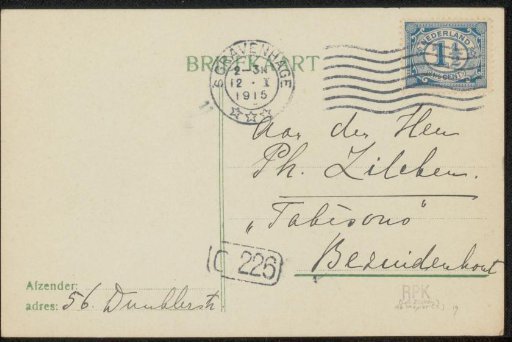 BRIEFKAART
'S GRAVENHAGE
2-3N
12. X
1915
NEDERLAND
1½
CENT
Aan den Heer
Ph. Zilcken.
"
"
Bezuidenhout
C 226
Afzender:
adres: 56.
RPK